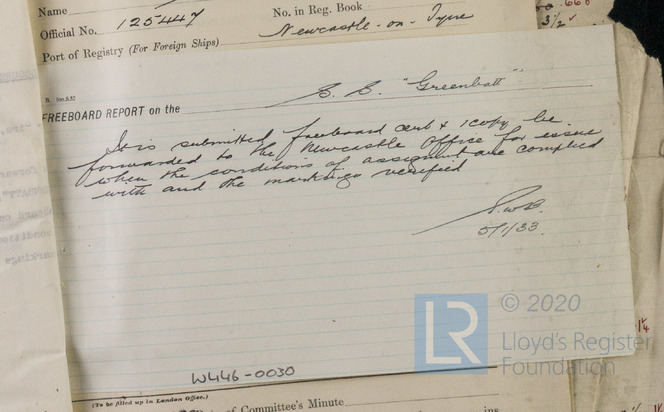 Name
No. in Reg. Book
Official No. 125447
Newcastle-on-Tyne
Port of Registry (For Foreign Ships)
3/2
FREEBOARD REPORT on the S.S. "Greenbatt"
It is submitted freeboard cert & 1 copy be
forwarded to the Newcastle Office for issue
when the conditions of assignment are complied
with and the markings verified
5/1/33
© 2020
LR
Lloyd's Register
Foundation
W446-0030
(To be filled up in London Office.)
of Committee's Minute